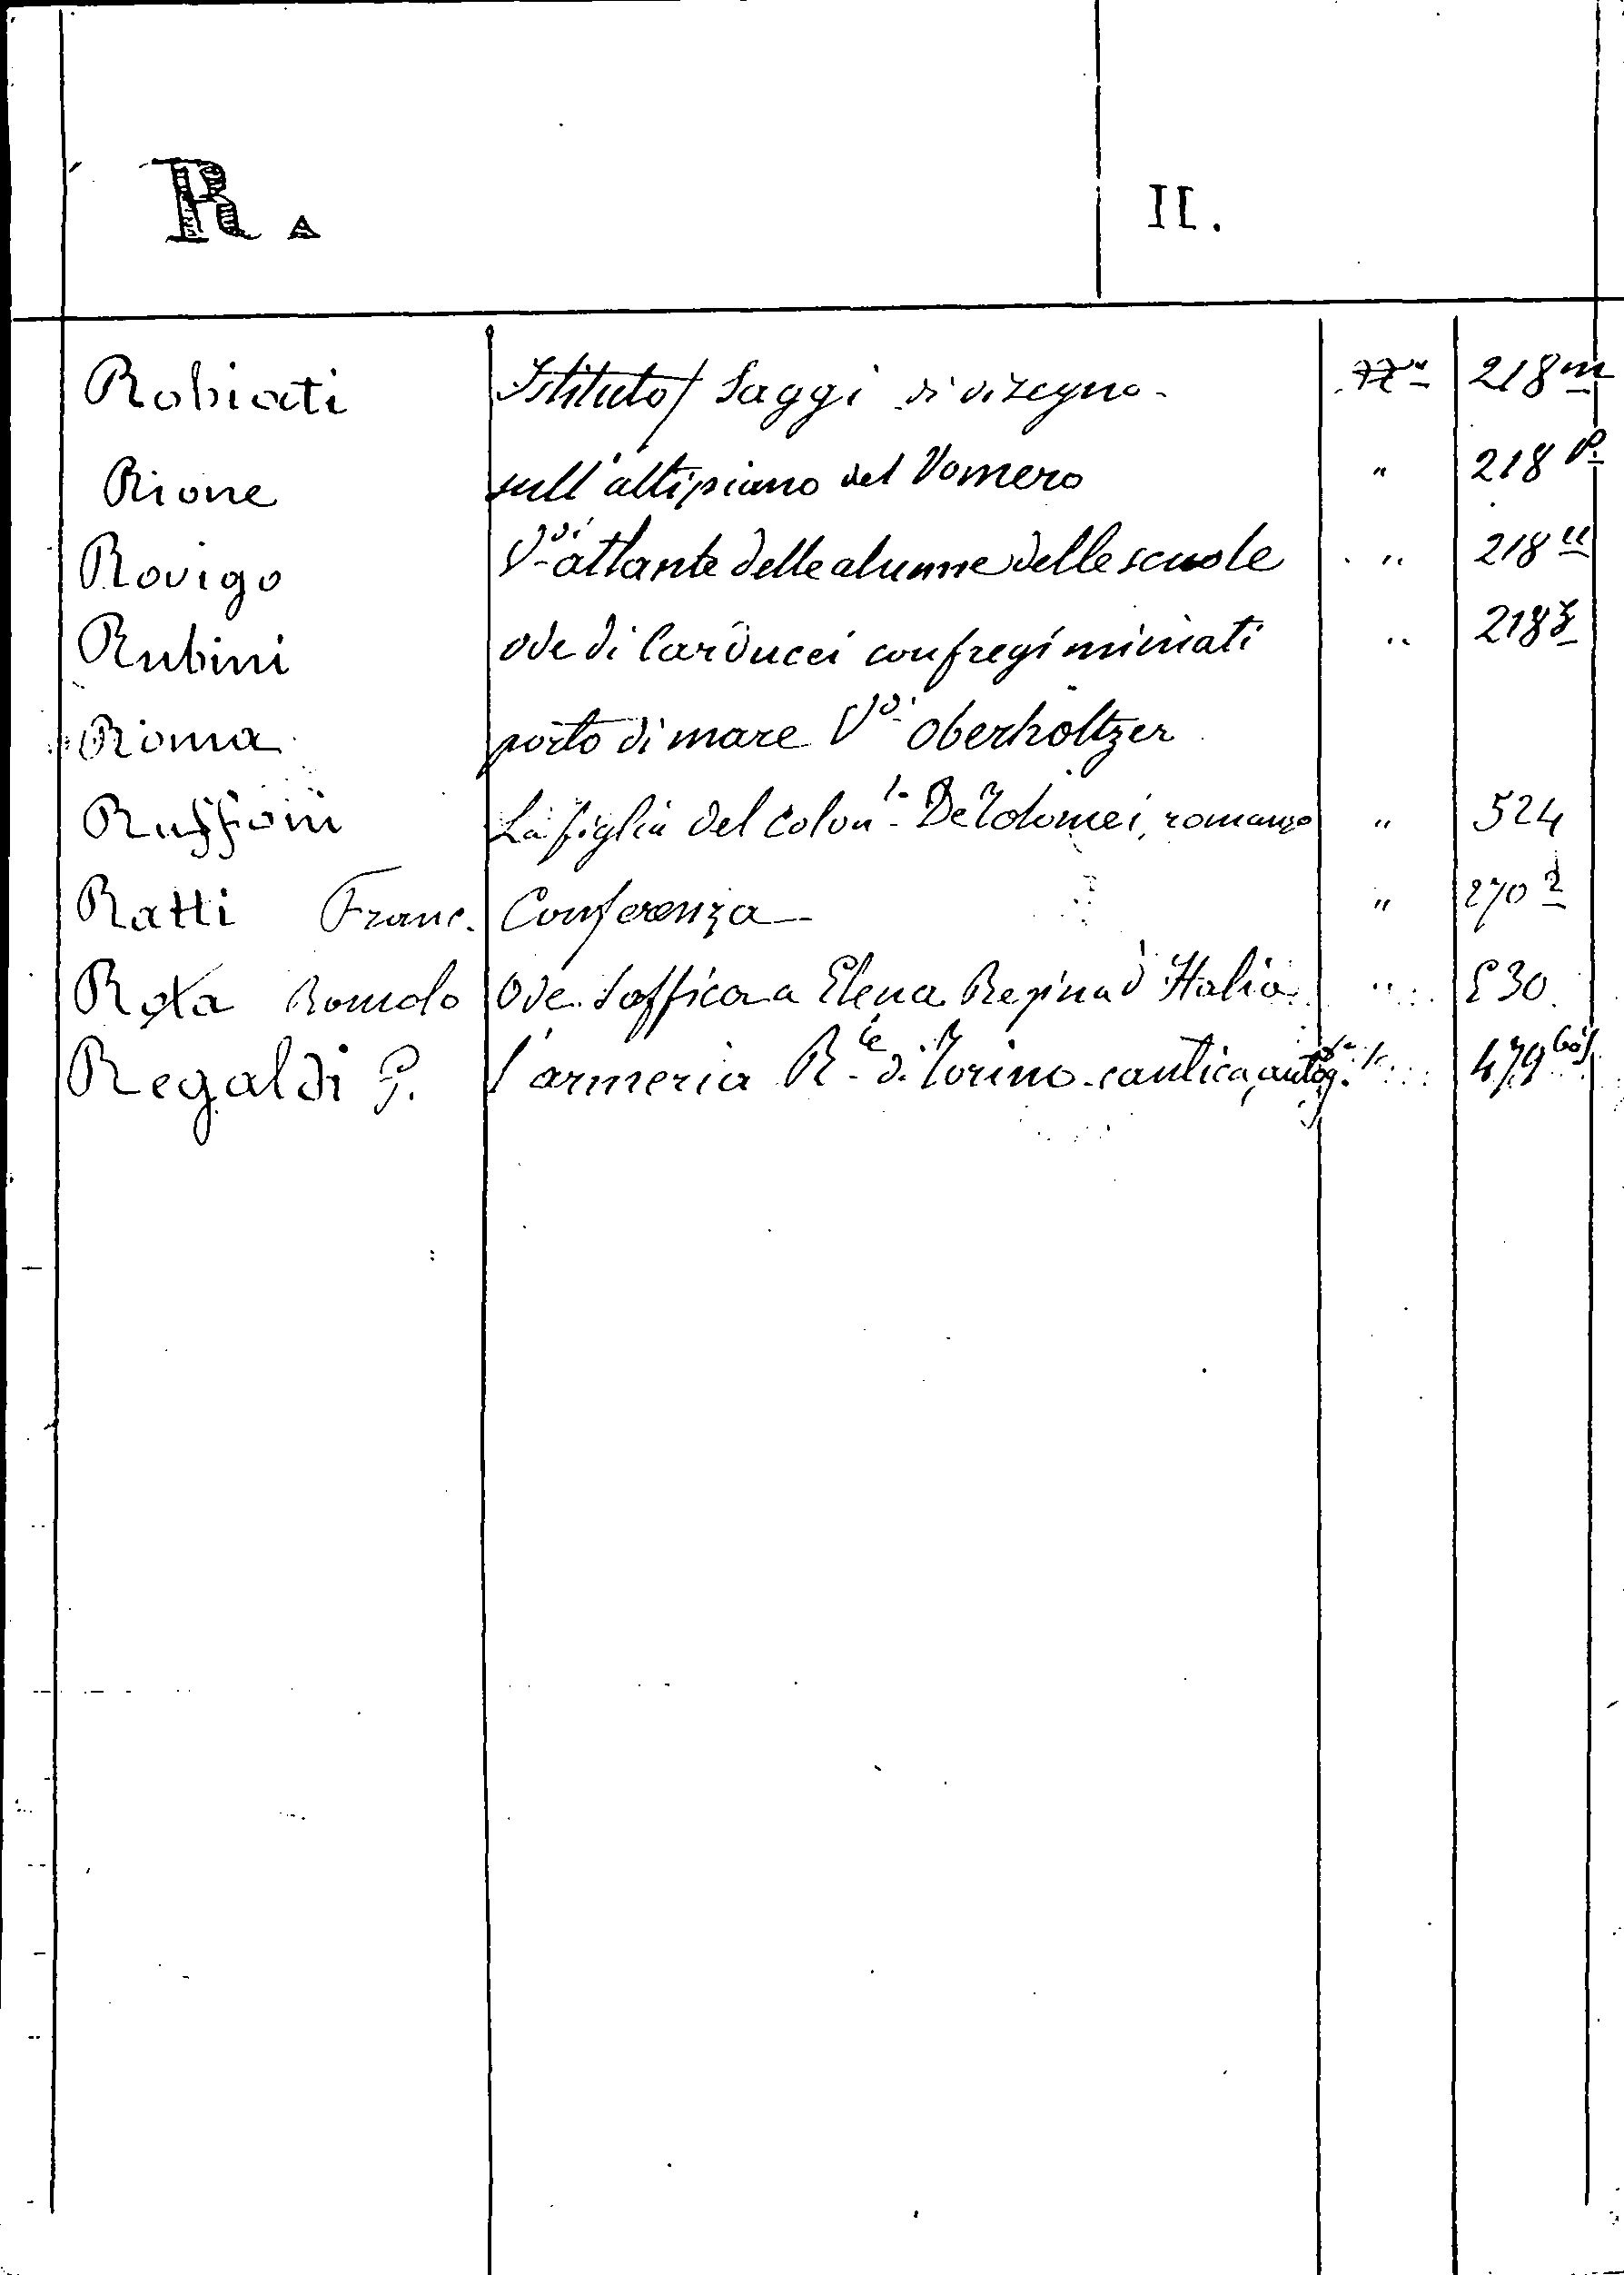 R. II.
Robiati Istituto / Saggi di disegno - 218 m
Rione sull'altipiano del Vomero " 218 p.
Rovigo Vdi atlante delle alunne delle scuole " 218 u
Rubini ode di Carducci con fregi miniati " 218 z
Roma porto di mare Vdi Oberholtzer
Ruffoni La figlia del colonlo De Tolomei, romanzo " 524
Ratti Franc. Conferenza - " 270 2
Rota Romolo Ode saffica a Elena Regina d'Italia " 530
Regaldi G. l'armeria Rle di Torino - cantica, autog. " 479 bis